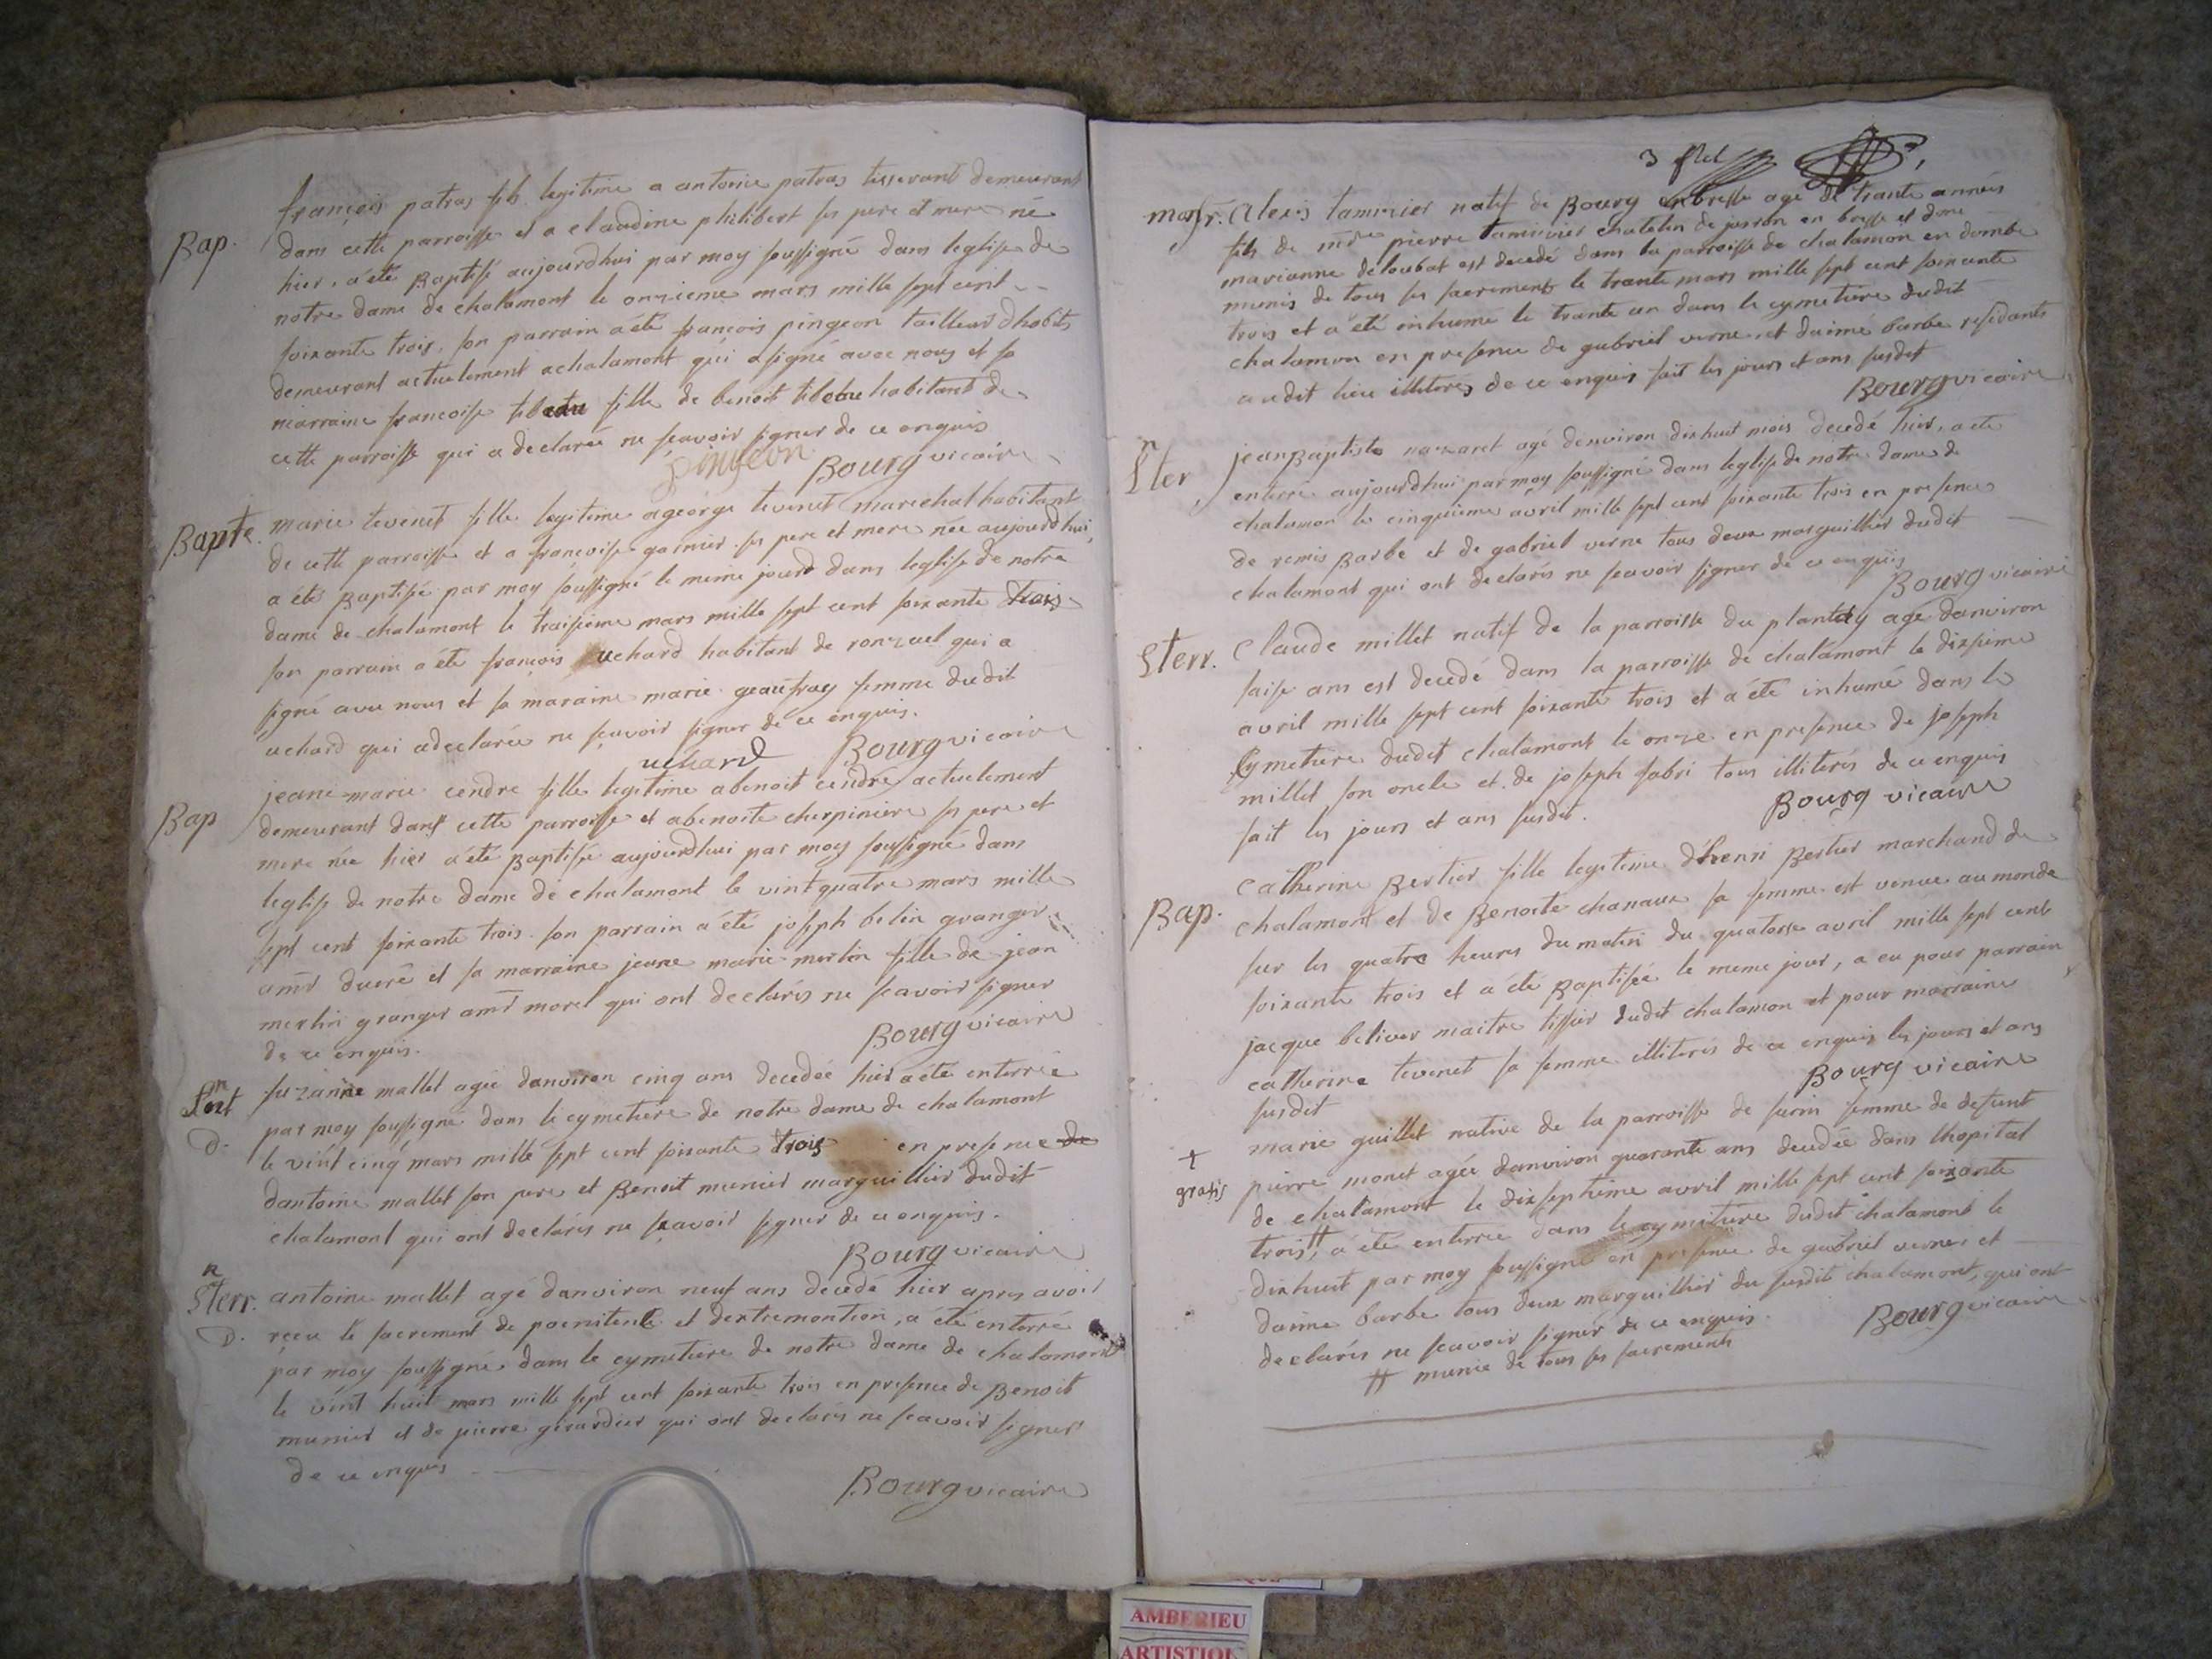 françois patras fils legitime a antoine patras tisserant demeurant
Bap. dans cette parroisse et a claudine philibert ses pere et mere né
hier, a été Baptisé aujourdhui par moy soussigné dans leglise de
notre dame de chalamont le onzieme mars mille sept cent
soixante trois, son parrain a été françois pingeon tailleur dhabits
demeurant actuelement achalamont qui a signé avec nous et sa
marraine francoise fille de benoit habitant de
cette parroisse qui a declarée ne sçavoir signer de ce enquis
pingeon Bourg vicaire
Bapte. marie tevenet fille legitime ageorge tevenet marechal habitant
de cette parroisse et a françoise garnier ses pere et mere née aujourdhui,
a été Baptisé par moy soussigné le meme jourd dans leglise de notre
dame de chalamont le traisieme mars mille sept cent soixante trois
son parrain a été françois uchard habitant de ronzuel qui a
signé avec nous et sa maraine marie geaufray femme dudit
uchard qui adeclarée ne sçavoir signer de ce enquis.
uchard Bourg vicaire
jeane marie cendre fille legitime abenoit cendre actuelement
Bap demeurant dans cette parroisse et abenoite cherpiniere ses pere et
mere née hier a été Baptisée aujourdhui par moy soussigné dans
leglise de notre dame de chalamont le vint quatre mars mille
sept cent soixante trois. son parrain a été joseph belin granger
amr ducré et sa marraine jeane marie merlin fille de jean
merlin granger amr morel qui ont declarés ne scavoir signer
de ce enquis. Bourg vicaire
suzanne mallet agée danviron cinq ans decedée hier a été enterrée
D. par moy soussigné dans le cymetiere de notre dame de chalamont
le vint cinq mars mille sept cent soixante trois en presence de
dantoine mallet son pere et Benoit munier marguillier dudit
chalamont qui ont declarés ne sçavoir signer de ce enquis.
Bourg vicaire
n
Sterr. antoine mallet agé danviron neuf ans decedé hier apres avoir
D. recu le sacrement de poenitence et dextremontion, a été enterré
par moy soussigné dans le cymetiere de notre dame de chalamont
le vint huit mars mille sept cent soixante trois en presence de Benoit
munier et de pierre girardier qui ont declarés ne scavoir signer
de ce enquis
Bourg vicaire
3
Alexis tamizier natif de Bourg en bresse agé de trante années
fils de mre pierre tamizier chatelin de jasron en bresse et done
marianne deloubat est decedé dans la parroisse de chalamon en dombe
munis de tous ses sacrements le trante mars mille sept cent soixante
trois et a été inhumé le trante un dans le cymetiere dudit
chalamon en presence de gabriel verne et daimé barbe residants
audit lieu illiterés de ce enquis fait les jours et ans susdit
Bourg vicaire
n
Ster jean Baptiste nazaret agé denviron dixhuit mois decedé hier, a été
enterré aujourdhui par moy soussigné dans leglise de notre dame de
chalamon le cinquieme avril mille sept cent soixante trois en presence
de remis Barbe et de gabriel verne tous deux marguillier dudit
chalamont qui ont declarés ne scavoir signer de ce enquis
Bourg vicaire
Sterr. Claude millet natif de la parroisse du plantay agé danviron
saise ans est decedé dans la parroisse de chalamont le dixieme
avril mille sept cent soixante trois et a été inhumé dans le
Cymetiere dudit chalamont le onze en presence de joseph
millet son oncle et de joseph fabri tous illiterés de ce enquis
fait les jours et ans susdit. Bourg vicaire
Catherine Bertier fille legitime d'henri Bertier marchand de
Bap. chalamont et de Benoite chanaux sa femme est venue au monde
sur les quatre heures du matin du quatorse avril mille sept cent
soixante trois et a été Baptisée le meme jour, a eu pour parrain
jacque beliver maitre tissier dudit chalamon et pour marraine
catherine tevenet sa femme illiterés de ce enquis les jours et ans
susdit Bourg vicaire
marie guillet native de la parroisse de surin femme de defunt
gratis pierre monet agée danviron quarante ans decedée dans lhopital
de chalamont le dixseptieme avril mille sept cent soixante
trois, # a été enterrée dans le cymitiere dudit chalamont le
dixhuit par moy soussigné en presence de gabriel verner et
daime barbe tous deux marguillier du susdit chalamont, qui ont
declarés ne scavoir signer de ce enquis. Bourg vicaire
# munie de tous ses sacrements
AMBERIEU